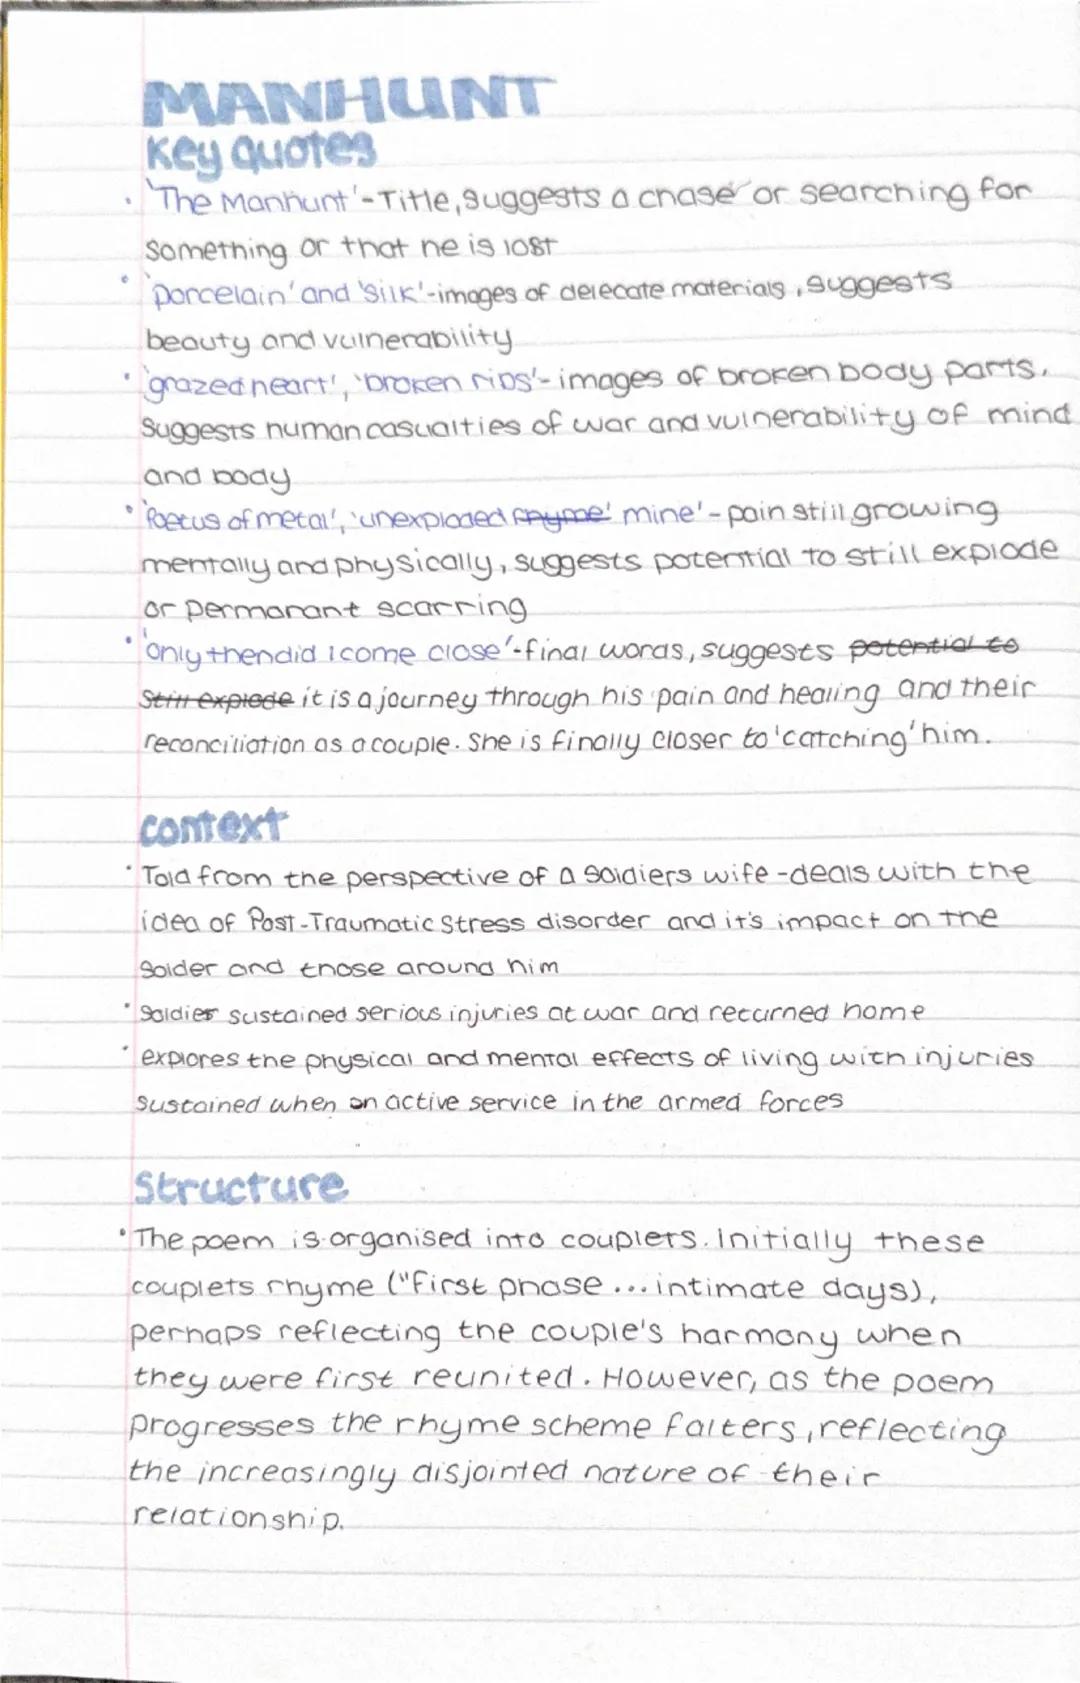 MANHUNT
Key quotes
• 'The Manhunt' - Title, suggests a chase or searching for
something or that he is lost
• 'porcelain' and 'silk' - images of delecate materials, suggests
beauty and vulnerability
• 'grazed heart', 'broken ribs' - images of broken body parts.
Suggests human casualties of war and vulnerability of mind
and body
• 'foetus of metal', 'unexploded rhyme' mine' - pain still growing
mentally and physically, suggests potential to still explode
or permanant scarring
• 'only then did i come close' - final words, suggests potential to
still explode it is a journey through his pain and healing and their
reconciliation as a couple. She is finally closer to 'catching' him.
context
• Told from the perspective of a soldiers wife - deals with the
idea of Post-Traumatic Stress disorder and it's impact on the
solder and those around him
• Soldier sustained serious injuries at war and returned home
• explores the physical and mental effects of living with injuries
sustained when on active service in the armed forces
Structure
• The poem is organised into couplets. Initially these
couplets rhyme ("first phase ... intimate days),
perhaps reflecting the couple's harmony when
they were first reunited. However, as the poem
progresses the rhyme scheme falters, reflecting
the increasingly disjointed nature of their
relationship.